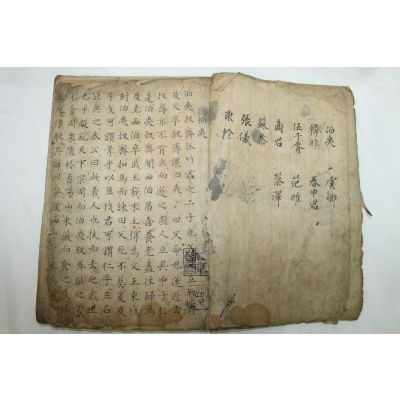 伯夷 虞卿
韓非 春申君
伍子胥 范睢
商君 蔡澤
蘇秦
張儀
陳軫
伯夷
伯夷叔齊孤竹君之二子也
及父卒叔齊讓伯夷曰父命也遂逃去
叔齊亦不肯立而逃之國人立其中子於
是伯夷叔齊聞西伯昌善養老盍往歸焉
及至西伯卒武王載木主號爲文王東伐
紂伯夷叔齊叩馬而諫曰父死不葬爰及
干戈可謂孝乎以臣弑君可謂仁乎左右
欲兵之太公曰此義人也扶而去之武王
已平殷亂天下宗周而伯夷叔齊恥之義
不食周粟隱於首陽山采薇而食之及